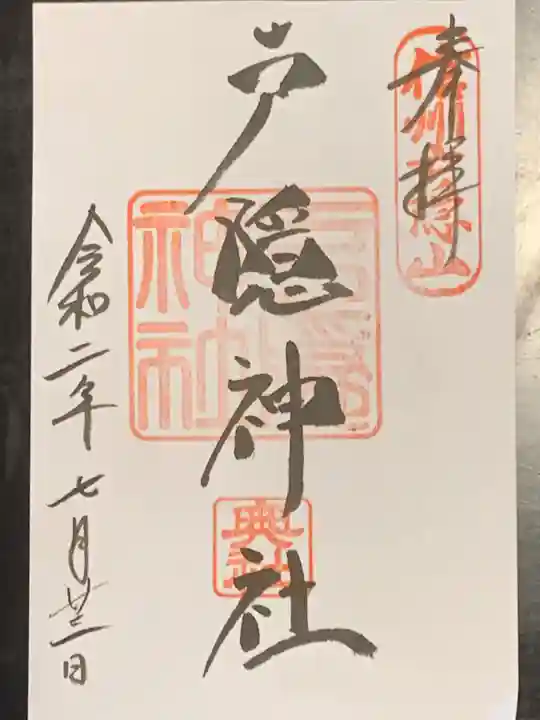 奉拝
信州戸隠山
戸隠神社
戸隠神社
奥社
令和二年七月廿三日